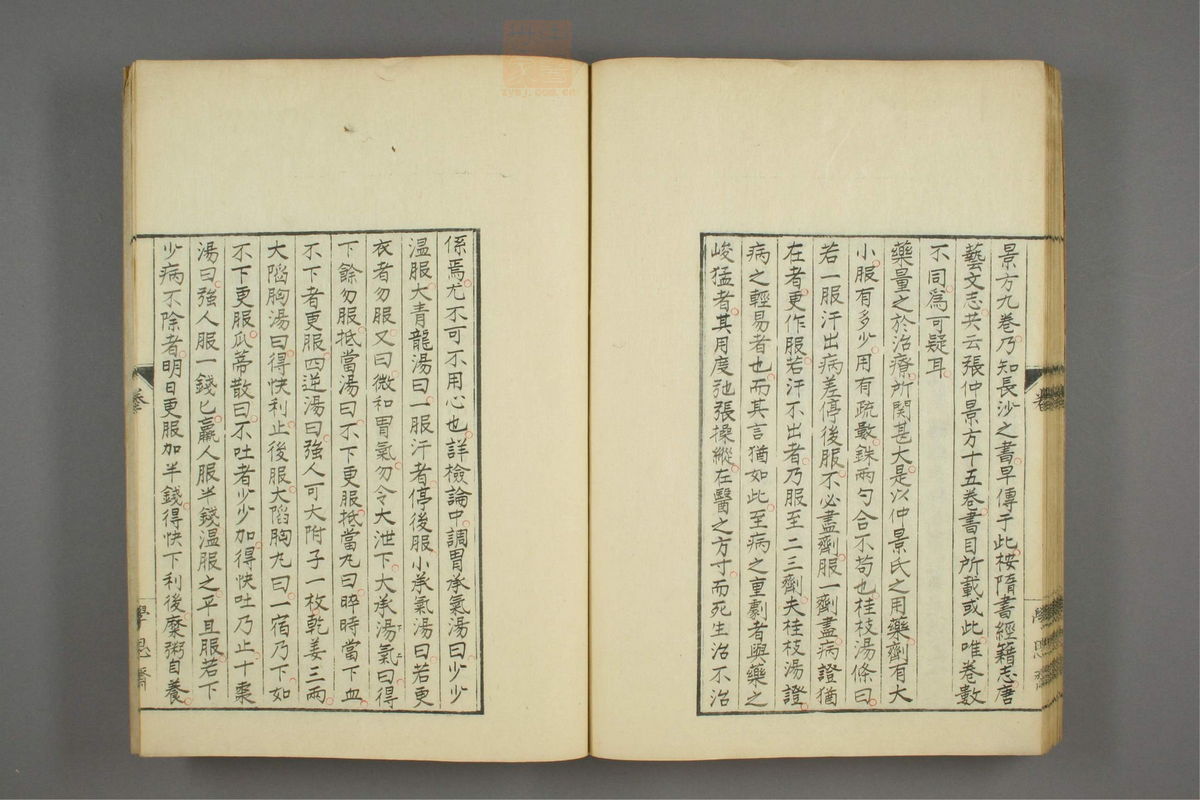 景方九卷乃知長沙之書早傳于此桉隋書經籍志唐
藝文志共云張仲景方十五卷書目所載或此唯卷數
不同爲可疑耳
藥量之於治療所関甚大是以仲景氏之用藥劑有大
小服有多少用有疏數銖兩勺合不苟也桂枝湯條曰
若一服汗出病差停後服不必盡劑服一劑盡病證猶
在者更作服若汗不出者乃服至二三劑夫桂枝湯證
病之輕易者也而其言猶如此至病之重劇者與藥之
峻猛者其用度弛張操縱在醫之方寸而死生治不治
係焉尤不可不用心也詳檢論中調胃承氣湯曰少少
温服大青龍湯曰一服汗者停後服小承氣湯曰若更
衣者勿服又曰微和胃氣勿令大泄下大承湯氣曰得
下餘勿服抵當湯曰不下更服抵當丸曰晬時當下血
不下者更服四逆湯曰強人可大附子一枚乾姜三兩
大陷胸湯曰得快利止後服大陷胸丸曰一宿乃下如
不下更服瓜蒂散曰不吐者少少加得快吐乃止十棗
湯曰強人服一錢匕羸人服半錢温服之平旦服若下
少病不除者明日更服加半錢得快下利後糜粥自養
學思齋
zysj.com.cn